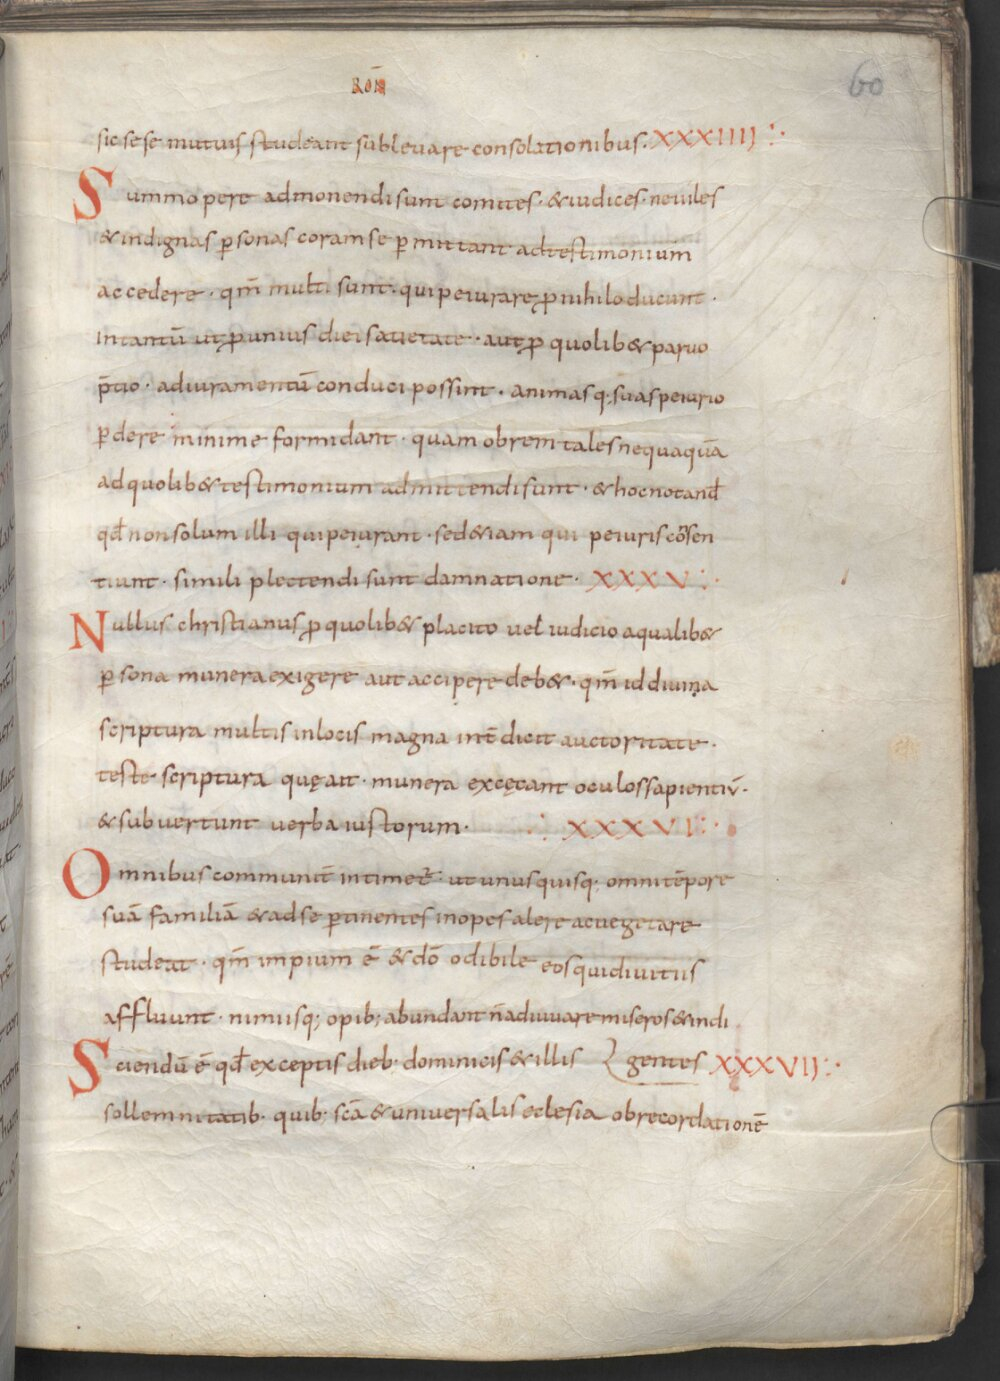 ROM̄
60
sic sese mutuis studeant sublevare consolationibus. XXXIIII
Summo pere admonendi sunt comites· & iudices· neviles
& indignas ꝑsonas coram se ꝑmittant ad testimonium
accedere· qm̄ multi sunt· qui peiurare ꝓ nihilo ducunt·
Intantū ut ꝓ unius diei satietate· aut ꝓ quolib& parvo
p̄tio· ad iuramentū conduci possint· animasq; suas peiurio
ꝑdere minime formidant· quam obrem tales nequaquā
ad quolib& testimonium admittendi sunt· & hoc notand̄
qd̄ non solum illi qui peiurant· sed &iam qui peiuris cōsen
tiunt· simili plectendi sunt damnatione· XXXV
Nullus christianus ꝓ quolib& placito vel̄ iudicio a qualib&
ꝑsona munera exigere aut accipere deb&· qm̄ id divina
scriptura multis in locis magna int̄dicit auctoritate·
teste scriptura quę ait· munera excęcant oculos sapientiū·
& subvertunt verba iustorum· XXXVI
Omnibus communit̄ intimet̄· ut unusquisq; omni tēpore
suā familiā & ad se ꝑtinentes inopes alere ac vegetare
studeat· qm̄ impium ē & dō odibile eos qui divitiis
affluunt· nimiisq; opib; abundant n̄ adiuvare miseros & indi
gentes XXXVII
Sciendū ē qd̄ exceptis dieb· dominicis & illis
sollemnitatib· quib; scā & universalis eclesia ob recordationē